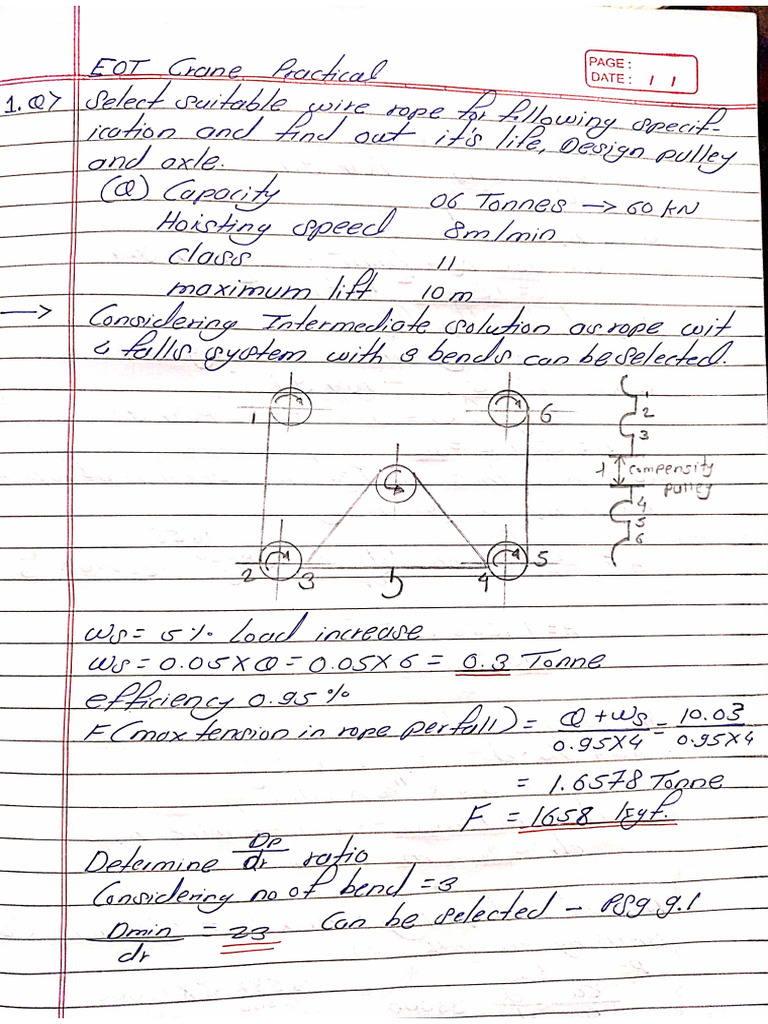 PAGE:
DATE: / /
EOT Crane Practical
1.Q> Select suitable wire rope for following specif-
ication and find out it's life, Design pulley
and axle.
(Q) Capacity 06 Tonnes → 60 kN
Hoisting speed 8m/min
Class 11
maximum lift 10m
→ Considering Intermediate solution as rope wit
4 falls system with 3 bends can be selected.
1 6
2 3 4 5
1
2
3
1 compensity
pulley
4
5
6
Ws = 5% Load increase
Ws = 0.05 X Q = 0.05 X 6 = 0.3 Tonne
efficiency 0.95 %
F (max tension in rope per fall) = Q + Ws / 0.95 X 4 = 10.03 / 0.95 X 4
= 1.6578 Tonne
F = 1658 kgf.
Determine Dp/dr ratio
Considering no of bend = 3
Dmin/dr = 23 Can be selected - PSg 9.1